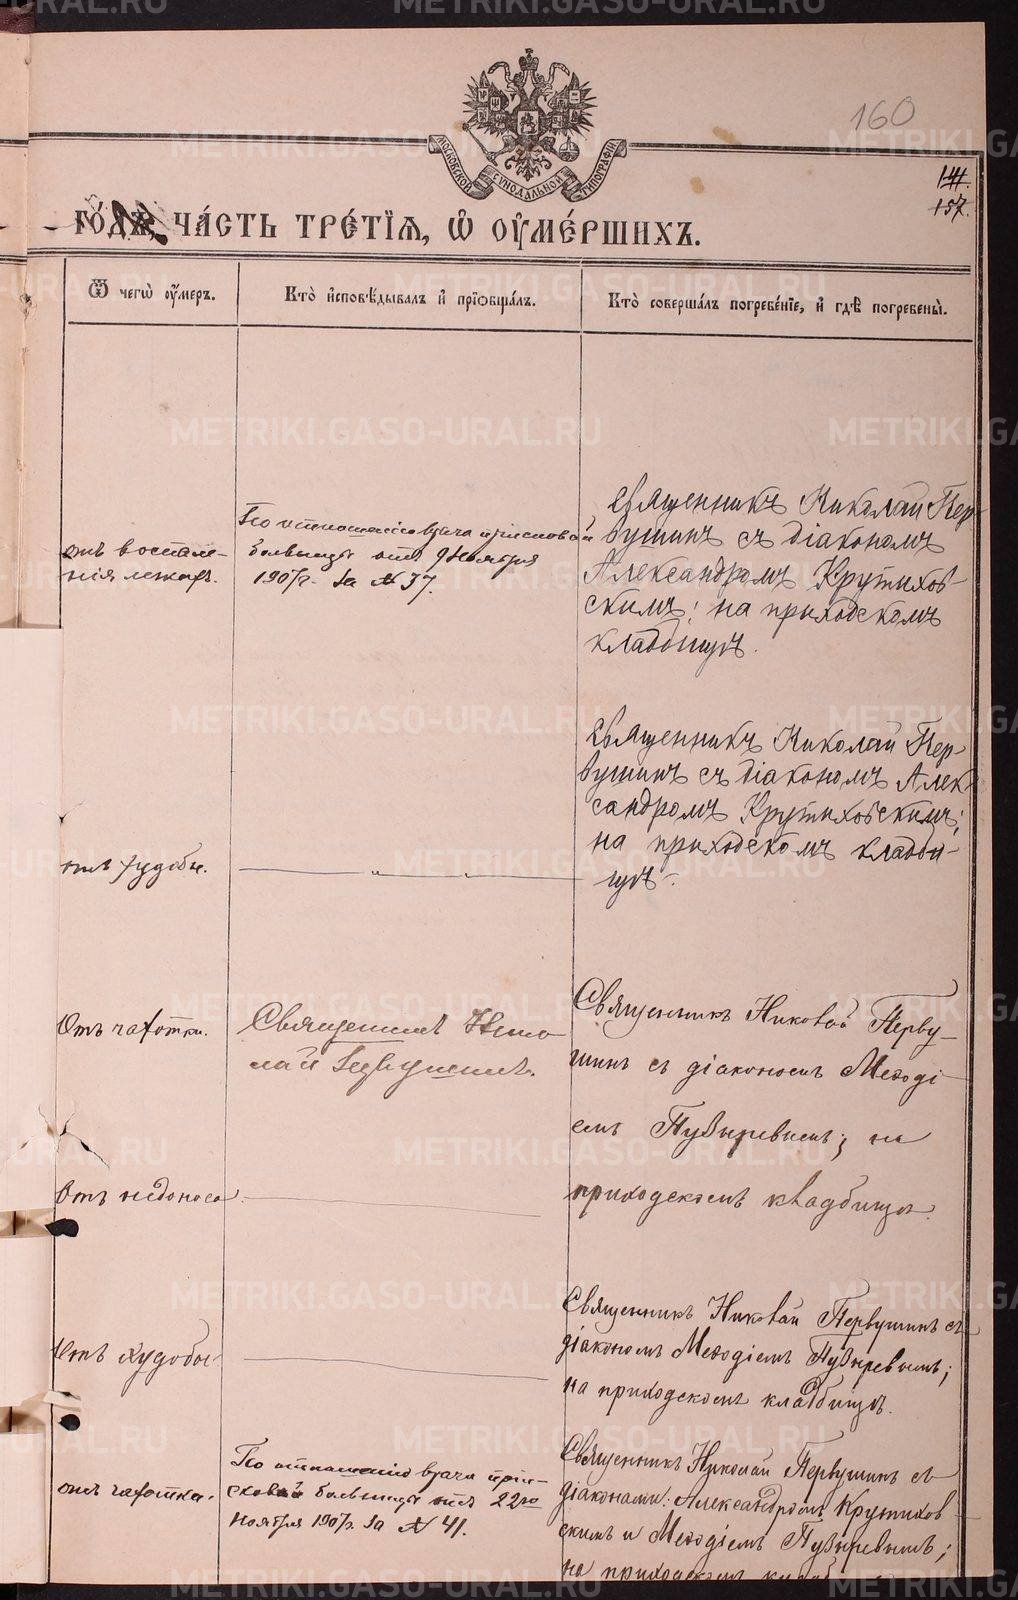 METRIKI.GASO-URAL.RU
160
МОСКОВСКОЙ СУНОДАЛЬНОЙ ТИПОГРАФІИ
141.
157.
ГО́ДѢ, ЧА́СТЬ ТРЕ́ТІѦ, Ѽ ОУМЕ́РШИХЪ.
Ѿ чегѡ̀ оу҆́меръ.
Кто̀ и҆сповѣ́дывалъ и҆ прїѡбща́лъ.
Кто̀ соверша́лъ погребе́нїе, и҆ гдѣ̀ погребены̀.
отъ воспале-
нія легкихъ.
По отношенію врача пріисковой
больницы отъ 9 Ноября
1907 г. за № 37.
Священникъ Николай Пер-
вушинъ съ діакономъ
Александромъ Крутихов-
скимъ; на приходскомъ
кладбищѣ.
отъ худобы.
— „ — „ —
Священникъ Николай Пер-
вушинъ съ діакономъ Алек-
сандромъ Крутиховскимъ;
на приходскомъ кладби-
щѣ.
Отъ чахотки.
Священникъ Нико
лай Первушинъ.
Священникъ Николай Перву-
шинъ съ діакономъ Меѳоді-
емъ Пузыревымъ; на
приходскомъ кладбищѣ.
Отъ недоноса.
Отъ худобы.
Священникъ Николай Первушинъ съ
діакономъ Меѳодіемъ Пузыревымъ;
на приходскомъ кладбищѣ.
отъ чахотки.
По отношенію врача пріи-
сковой больницы отъ 22го
Ноября 1907 г. за № 41.
Священникъ Николай Первушинъ съ
діаконами: Александромъ Крутихов
скимъ и Меѳодіемъ Пузыревымъ;
на приходскомъ